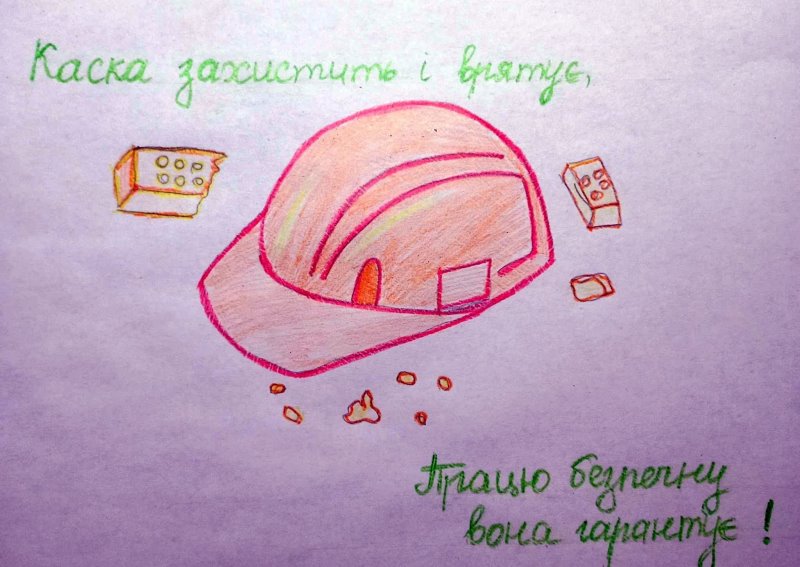 Каска захистить і врятує,
Працю безпечну
вона гарантує !